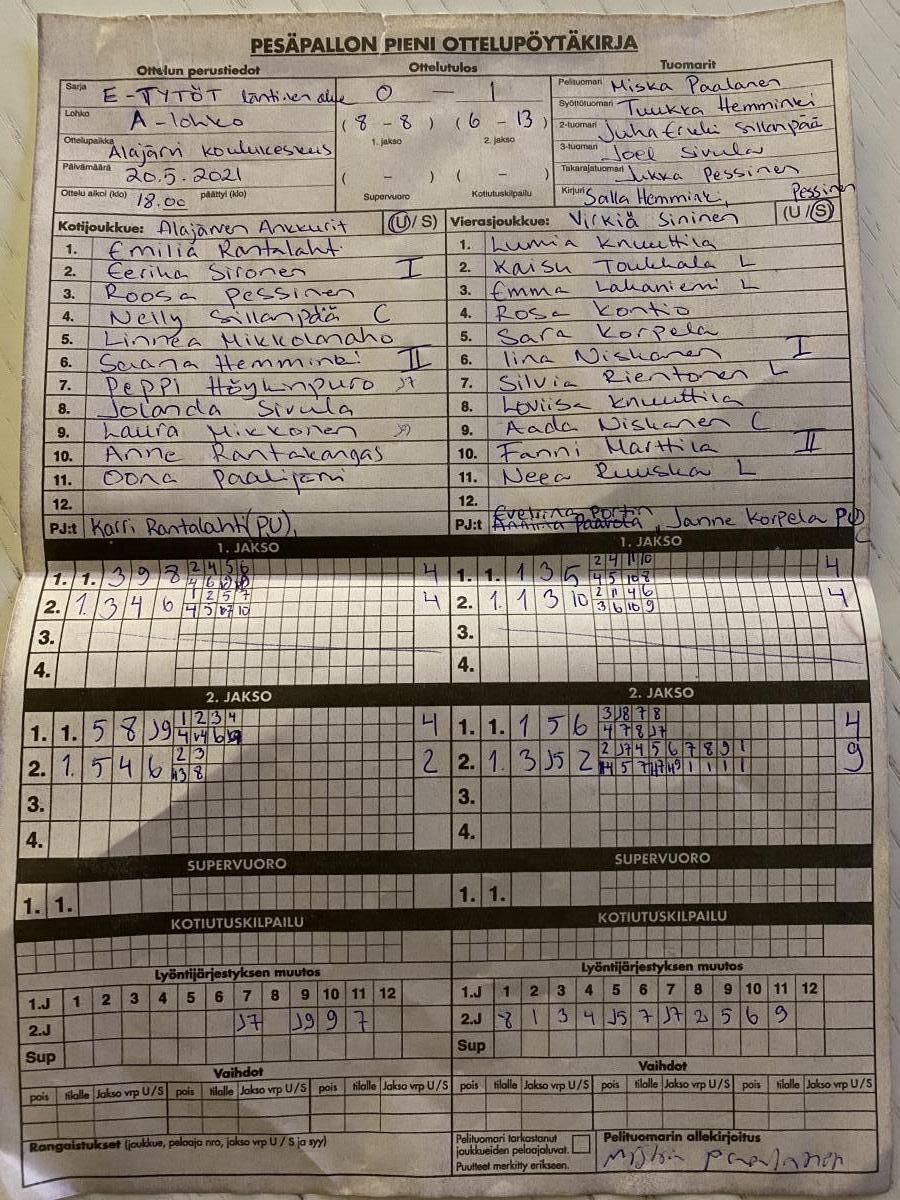 PESÄPALLON PIENI OTTELUPÖYTÄKIRJA
Ottelun perustiedot Ottelutulos Tuomarit
Sarja E-TYTÖT läntinen alue 0 — 1 Pelituomari Miska Paalanen
Lohko A-lohko (8 - 8) (6 - 13) Syöttötuomari Tuukka Hemminki
1. jakso 2. jakso 2-tuomari Juha Erkki Sillanpää
Ottelupaikka Alajärvi koulukeskus 3-tuomari Joel Sivula
Päivämäärä 20.5.2021 ( - ) ( - ) Takarajatuomari Jukka Pessinen
Ottelu alkoi (klo) 18.00 päättyi (klo) Supervuoro Kotiutuskilpailu Kirjuri Salla Hemminki, Pessinen
Kotijoukkue: Alajärven Ankkurit (U/S) Vierasjoukkue: Virkiä Sininen (U/S)
1. Emilia Rantalahti 1. Lumia Knuuttila
2. Eerika Sironen I 2. Kaisu Toukkala L
3. Roosa Pessinen 3. Emma Lakaniemi L
4. Nelly Sillanpää C 4. Rosa Kontio
5. Linnea Mikkolanaho 5. Sara Korpela
6. Saana Hemminki II 6. Iina Niskanen I
7. Peppi Höykinpuro J7 7. Silvia Rientonen L
8. Jolanda Sivula 8. Loviisa Knuuttila
9. Laura Mikkonen J9 9. Aada Niskanen C
10. Anne Rantakangas 10. Fanni Marttila II
11. Oona Paalijärvi 11. Neea Ruuska L
12. 12.
PJ:t Karri Rantalahti (PU), PJ:t Eveliina Portin, Janne Korpela PU
1. JAKSO 1. JAKSO
1. 1. 3 9 8 2 4 5 6 4 1. 1. 1 3 5 2 4 11 10 4
4 5 10 8
2. 1. 3 4 6 1 2 5 7 4 2. 1. 1 3 10 2 11 4 6 4
3 6 10 9
3. 3.
4. 4.
2. JAKSO 2. JAKSO
1. 1. 5 8 J9 1 2 3 4 4 1. 1. 1 5 6 3 J8 7 8 4
4 7 8 J7
2. 1. 5 4 6 2 3 2 2. 1. 3 J5 2 2 J7 4 5 6 7 8 9 1 9
3. 3.
4. 4.
SUPERVUORO SUPERVUORO
1. 1. 1. 1.
KOTIUTUSKILPAILU KOTIUTUSKILPAILU
Lyöntijärjestyksen muutos Lyöntijärjestyksen muutos
1.J 1 2 3 4 5 6 7 8 9 10 11 12 1.J 1 2 3 4 5 6 7 8 9 10 11 12
2.J J7 J9 9 7 2.J 8 1 3 4 J5 7 J7 2 5 6 9
Sup Sup
Vaihdot Vaihdot
pois tilalle Jakso vrp U/S pois tilalle Jakso vrp U/S pois tilalle Jakso vrp U/S pois tilalle Jakso vrp U/S pois tilalle Jakso vrp U/S pois tilalle Jakso vrp U/S
Rangaistukset (joukkue, pelaaja nro, jakso vrp U / S ja syy) Pelituomari tarkastanut Pelituomarin allekirjoitus
joukkueiden pelaajaluvat.
Puutteet merkitty erikseen. Miska Paalanen